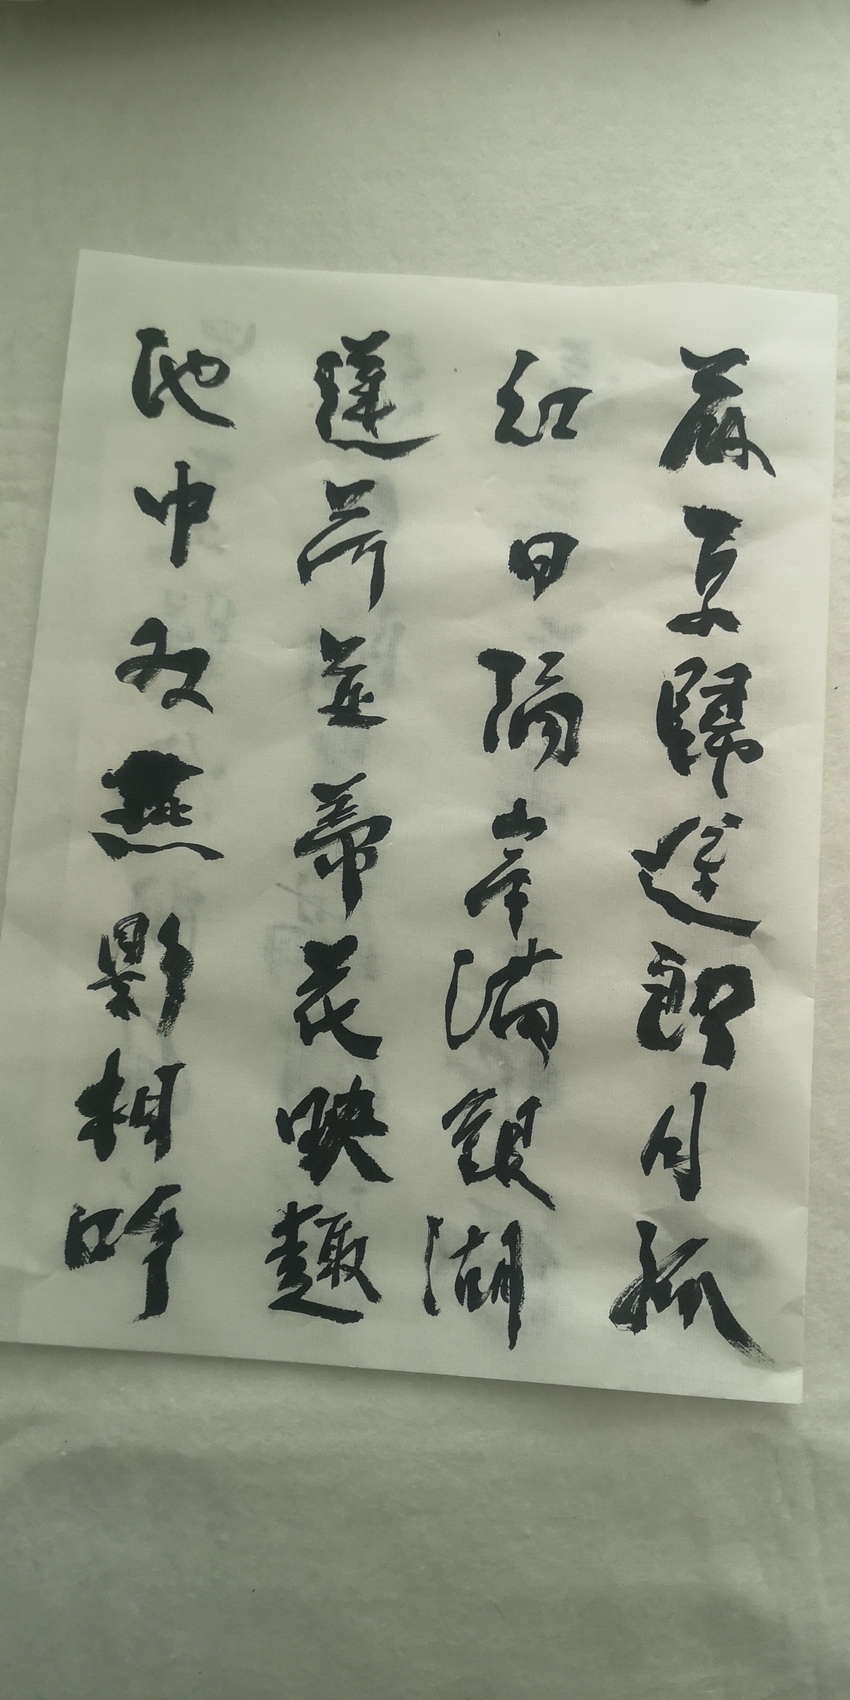 京歸途朗月孤
紅日隔岸滿銀湖
蓮荷並蒂花映趣
池中双燕影相呼